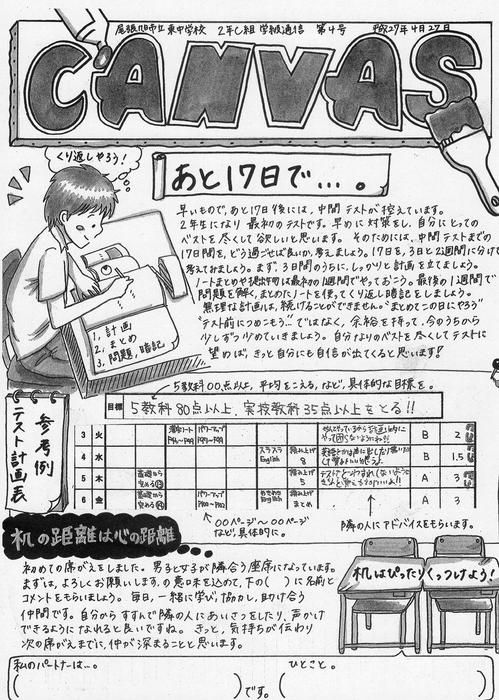 尾張旭市立 東中学校 2年し組 学級通信 第4号 平成27年4月27日
CANVAS
くり返しやろう!
あと17日で…。
早いもので、あと17日後には、中間テストが控えています。
2年生になり最初のテストです。早めに対策をし、自分にとっての
ベストを尽くして欲しいと思います。そのためには、中間テストまでの
17日間を、どう過ごせば良いか、考えましょう。17日を、3日と2週間に分けて
考えておきましょう。まず、3日間のうちに、しっかりと計画を立てましょう。
ノートまとめや提出物は最初の1週間でやっておこう。最後の1週間で
問題を解く、まとめたノートを使ってくり返し暗記をしましょう。
無理な計画は、続けることができません。"まとめてこの日にやろう"
"テスト前につめこもう…"ではなく、余裕を持って、今のうちから
少しずつ少めていきましょう。自分なりのベストを尽くしてテストに
望めば、きっと自分にも自信が出てくると思います!
1. 計画
2. まとめ
3. 問題、暗記
5教科○○点以上、平均をこえる、など、具体的な目標を。
参考例
テスト計画表
目標 5教科80点以上、実技教科35点以上をとる!!
3 火 B 2
4 水 スラスラ English 8 B 1.5
5 木 5 A 3
6 金 English まとめ A 3
○○ページ〜○○ページ
など、具体的に。
隣の人にアドバイスをもらいます。
机の距離は心の距離
初めての席がえをしました。男子と女子が隣合う座席になっています。
まずは、よろしくお願いします、の意味を込めて、下の( )に名前と
コメントをもらいましょう。毎日、一緒に学び、協力し、助け合う
仲間です。自分からすすんで隣の人にあいさつをしたり、声かけ
できるようになれると良いですね。きっと、気持ちが伝わり
次の席がえまでに、仲が深まることと思います。
机はぴったりくっつけよう!
私のパートナーは…。
( )です。
ひとこと。
( )